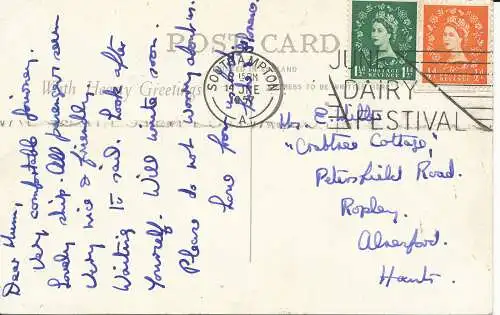 POST CARD
With Hearty Greetings
SOUTHAMPTON
JUNE
DAIRY
FESTIVAL
POSTAGE
REVENUE
1½ 1½
Dear Mum,
Very comfortable journey.
Lovely ship. All passengers seem
Very nice & friendly.
Writing It said. Look after
Yourself. Will write soon.
Please do not worry about us.
Love from
Mrs. A. Mills
"Crabtree Cottage,"
Petersfield Road.
Ropley.
Alresford.
Hants.